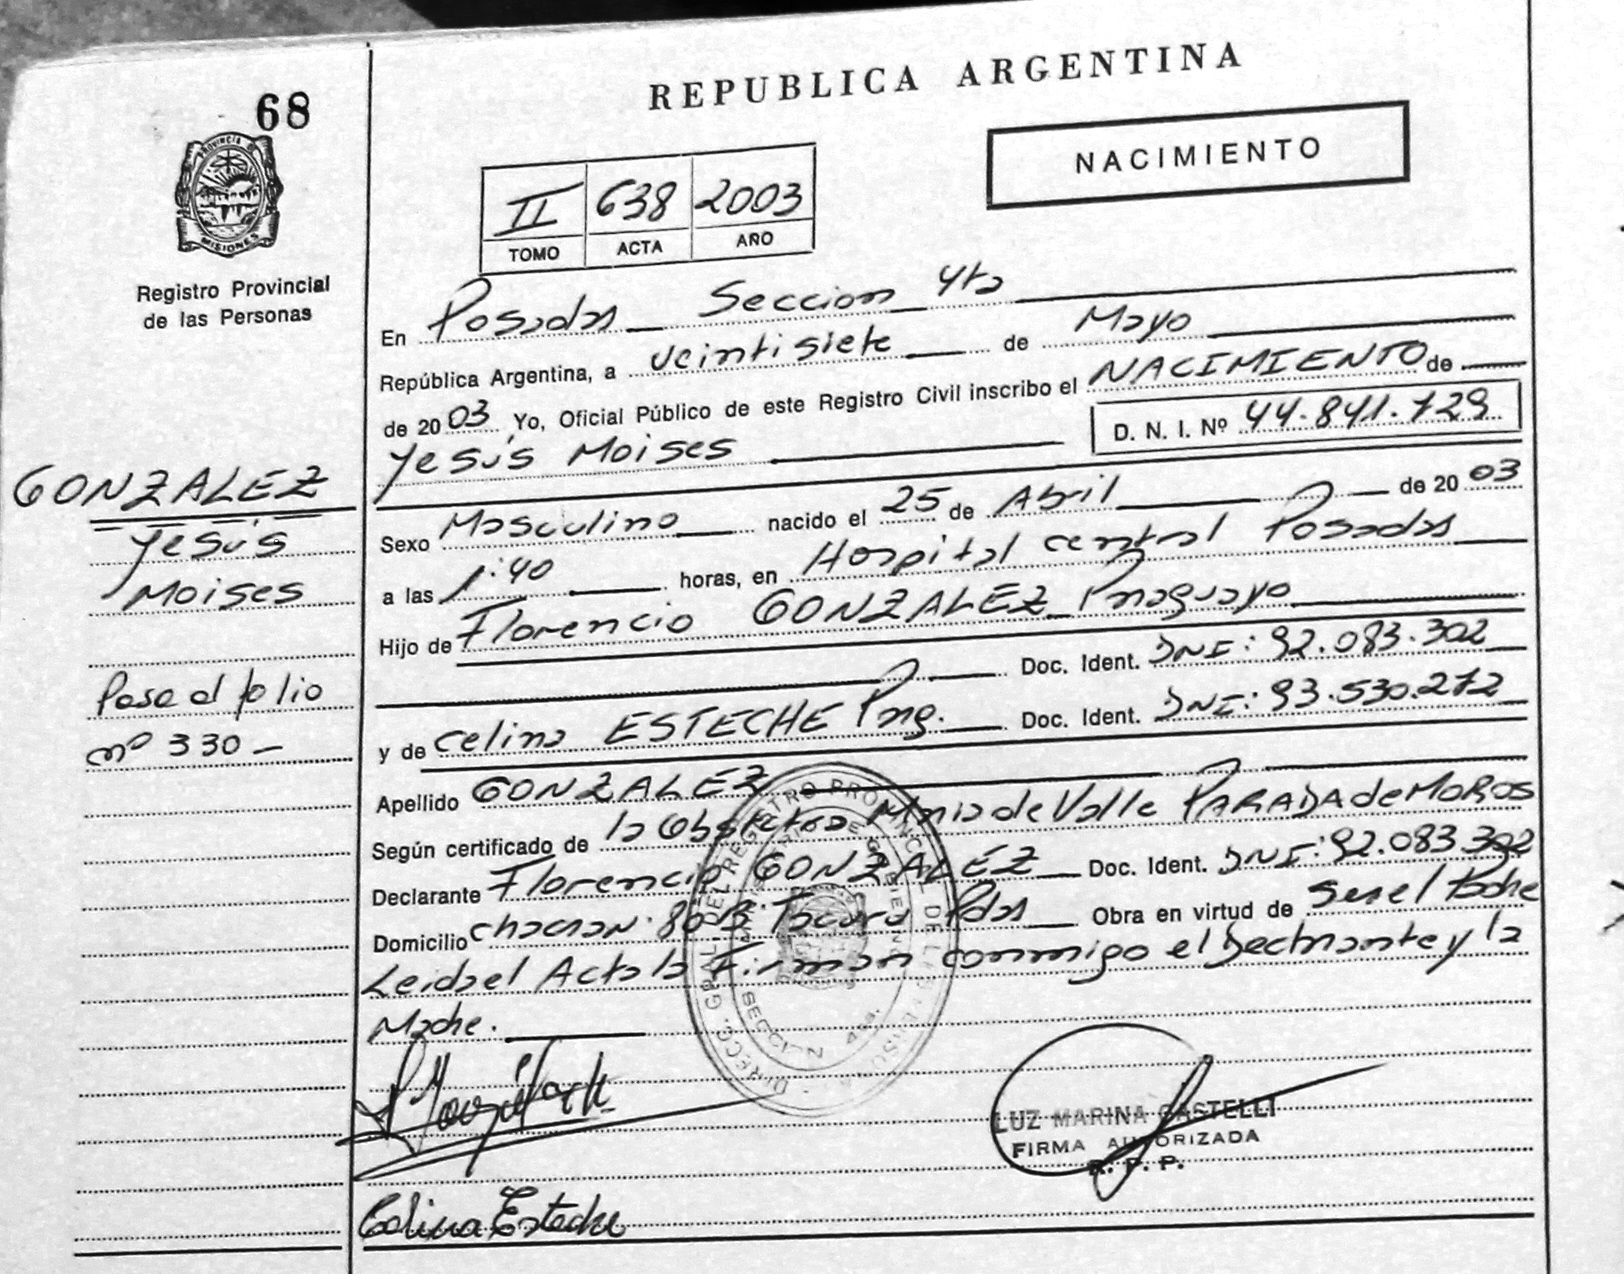 REPUBLICA ARGENTINA
68
PROVINCIA DE
MISIONES
Registro Provincial
de las Personas
NACIMIENTO
II 638 2003
TOMO ACTA AÑO
En Posadas Seccion 4ta
República Argentina, a veintisiete de Mayo
de 2003 Yo, Oficial Público de este Registro Civil inscribo el NACIMIENTO de
D. N. I. Nº 44.841.729
Yesús Moises
GONZALEZ
Yesús
Moises
Pase al folio
nº 330-
Sexo Masculino nacido el 25 de Abril de 2003
a las 1:40 horas, en Hospital central Posadas
Hijo de Florencio GONZALEZ Paraguayo
Doc. Ident. DNI: 92.083.302
y de Celina ESTECHE Prag. Doc. Ident. DNI: 93.530.272
Apellido GONZALEZ
Según certificado de la Obstetra Maria de Valle PARADA de MOROS
Declarante Florencio GONZALEZ Doc. Ident. DNI: 92.083.302
Domicilio chacra 80 B° Tacurú Pdas Obra en virtud de ser el Padre
Leida el Acta la Firman conmigo el Declarante y la
Madre.
LUZ MARINA CASTELLI
FIRMA AUTORIZADA
R. P. P.
Celina Esteche